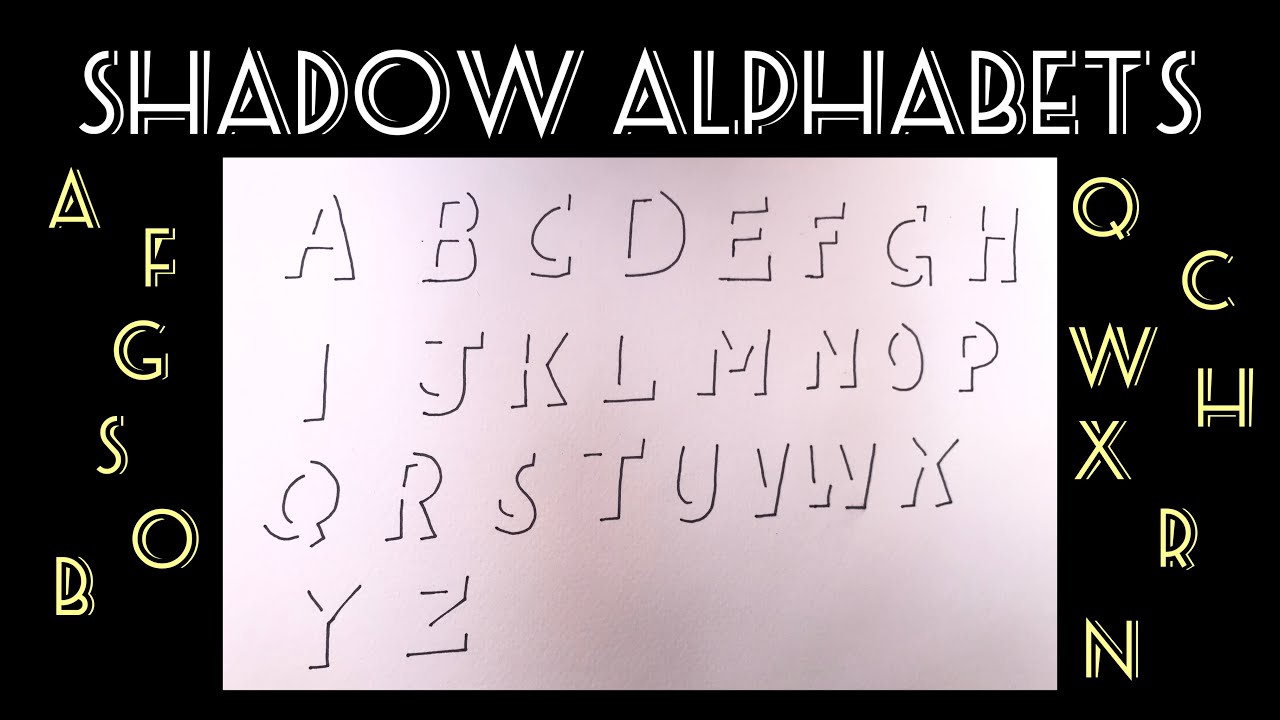 SHADOW ALPHABETS
A B C D E F G H
I J K L M N O P
Q R S T U V W X
Y Z
A
F
G
S
O
B
Q
C
W
H
X
R
N